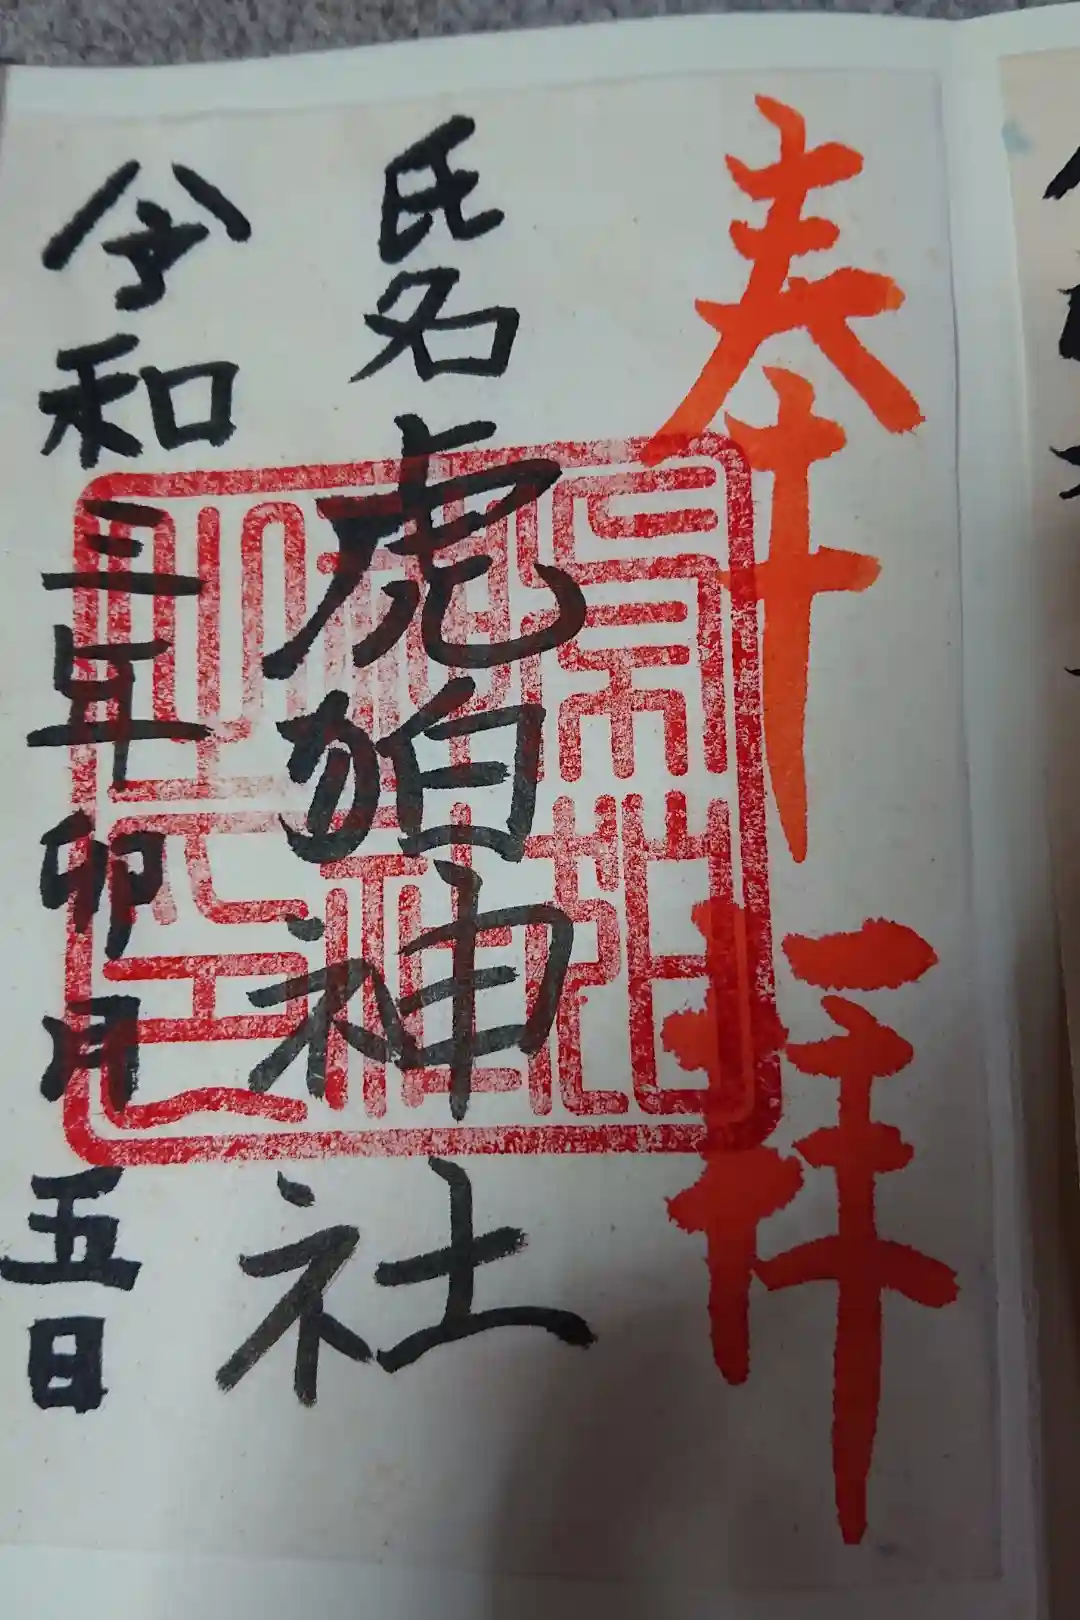 奉拝
氏名虎狛神社
令和三年卯月五日